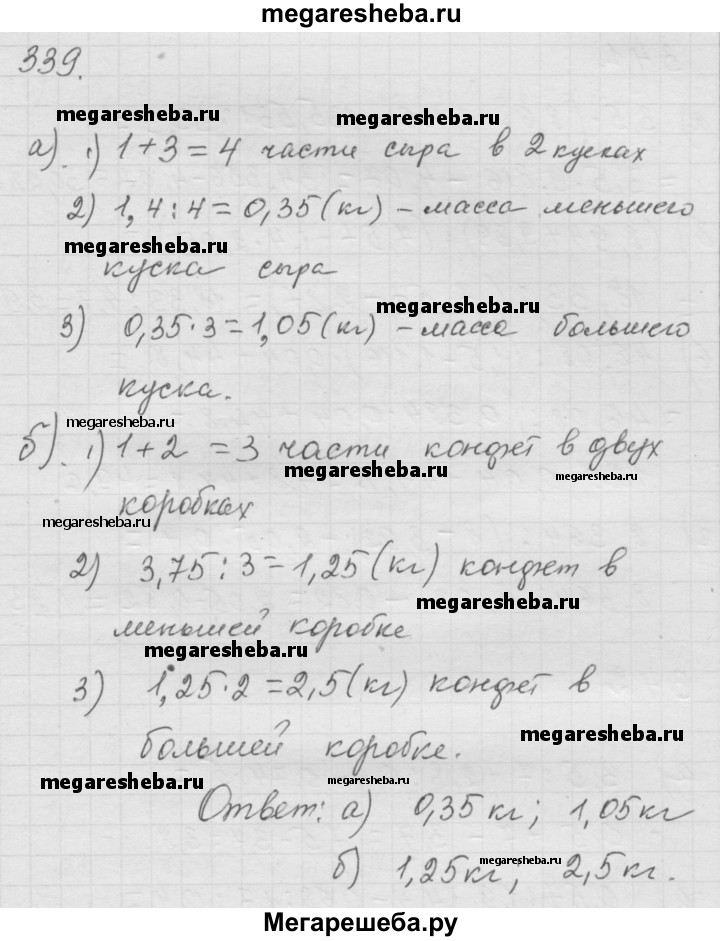 megaresheba.ru
339.
megaresheba.ru
megaresheba.ru
а). 1) 1+3=4 части сыра в 2 кусках
2) 1,4:4=0,35(кг) – масса меньшего
megaresheba.ru
куска сыра
megaresheba.ru
3) 0,35·3=1,05(кг) – масса большего
куска.
megaresheba.ru
б). 1) 1+2 =3 части конфет в двух
megaresheba.ru
megaresheba.ru
коробках
megaresheba.ru
2) 3,75:3=1,25(кг) конфет в
megaresheba.ru
меньшей коробке
megaresheba.ru
3) 1,25·2=2,5(кг) конфет в
megaresheba.ru
большей коробке.
megaresheba.ru
megaresheba.ru
Ответ: а) 0,35кг; 1,05кг
megaresheba.ru
б) 1,25кг, 2,5кг.
Мегарешеба.ру